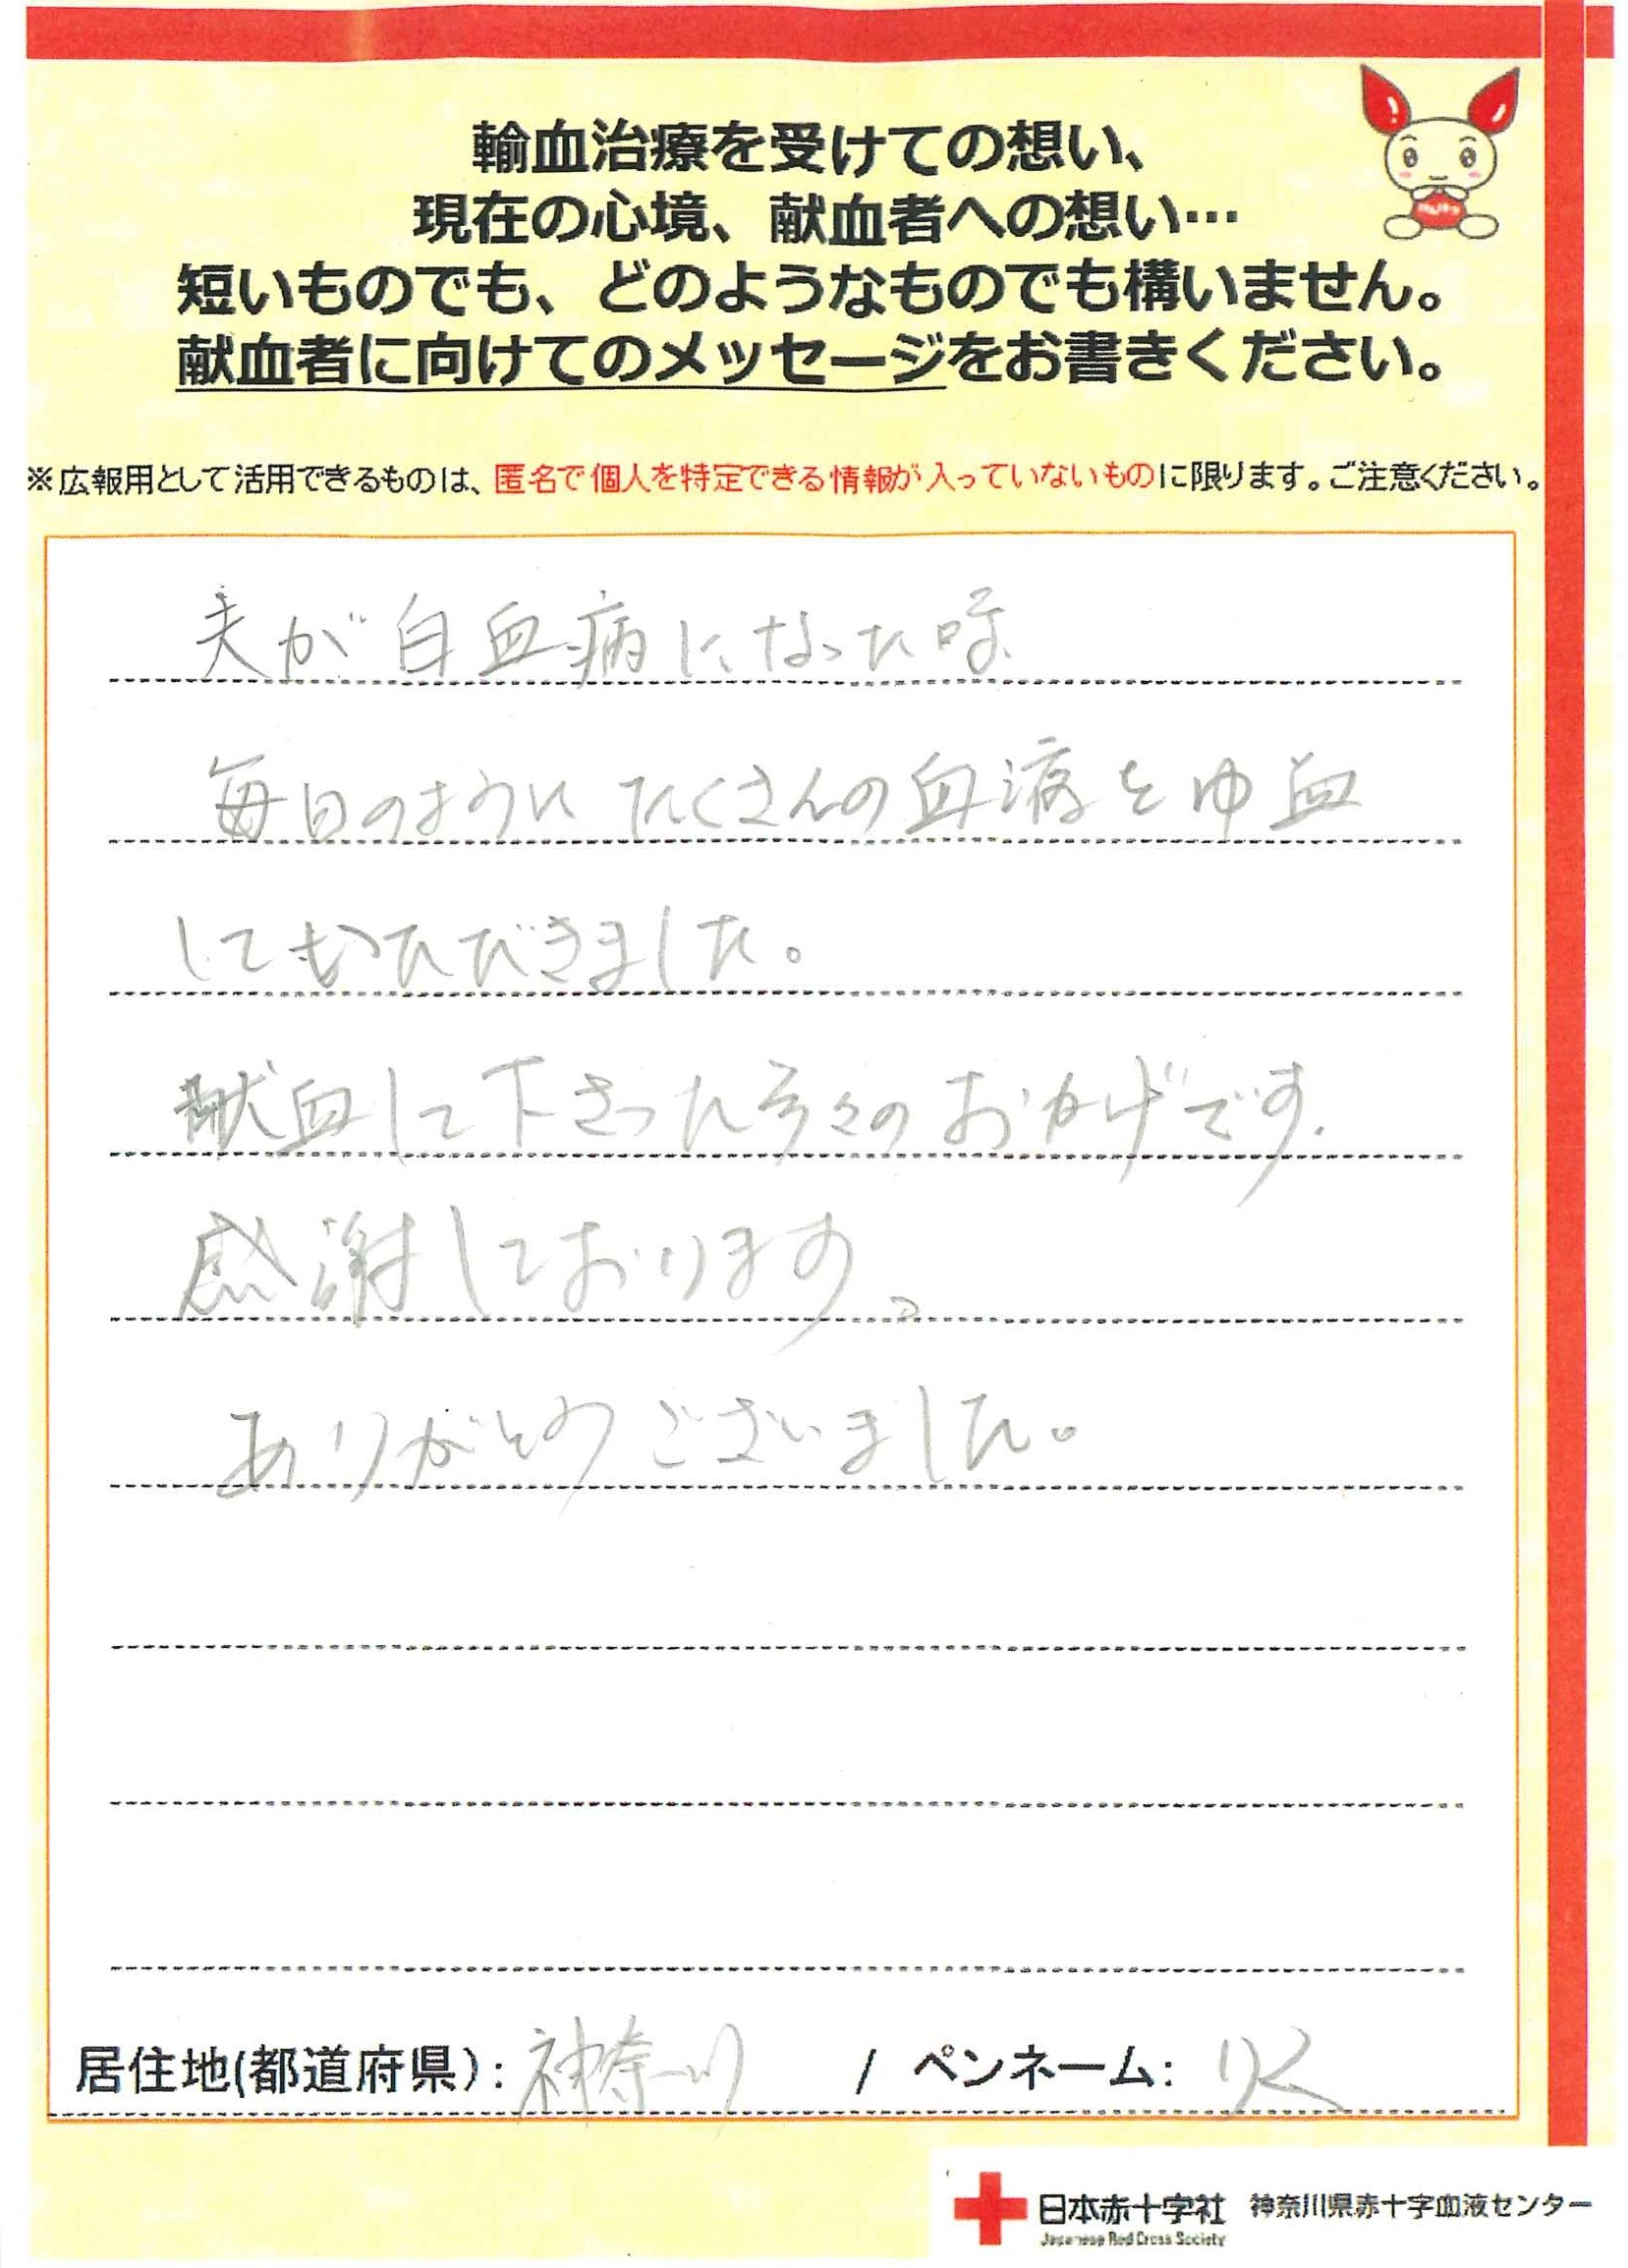 輸血治療を受けての想い、
現在の心境、献血者への想い…
短いものでも、どのようなものでも構いません。
献血者に向けてのメッセージをお書きください。
※広報用として活用できるものは、匿名で個人を特定できる情報が入っていないものに限ります。ご注意ください。
夫が白血病になった時
毎日のようにたくさんの血液をゆ血
していただきました。
献血して下さった方々のおかげです.
感謝しております。
ありがとうございました。
居住地(都道府県): 神奈川 / ペンネーム: りく
日本赤十字社 神奈川県赤十字血液センター
Japanese Red Cross Society